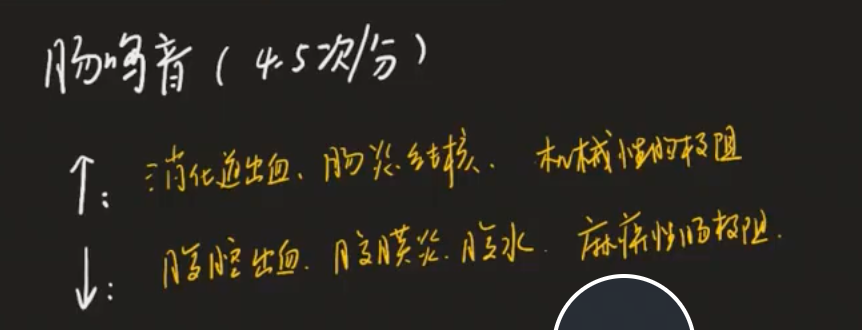 肠鸣音（4-5次/分）
↑：消化道出血、肠炎、结核、机械性肠梗阻
↓：腹腔出血、腹膜炎、腹水、麻痹性肠梗阻.